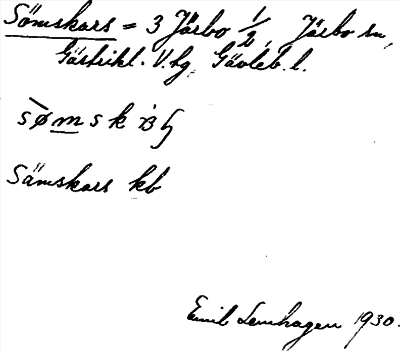 Sömskars = 3 Järbo 1/2, Järbo sn,
Gästrikl. V. hg, Gävleb. l.
Sämskars kb
Emil Lenhagen 1930.